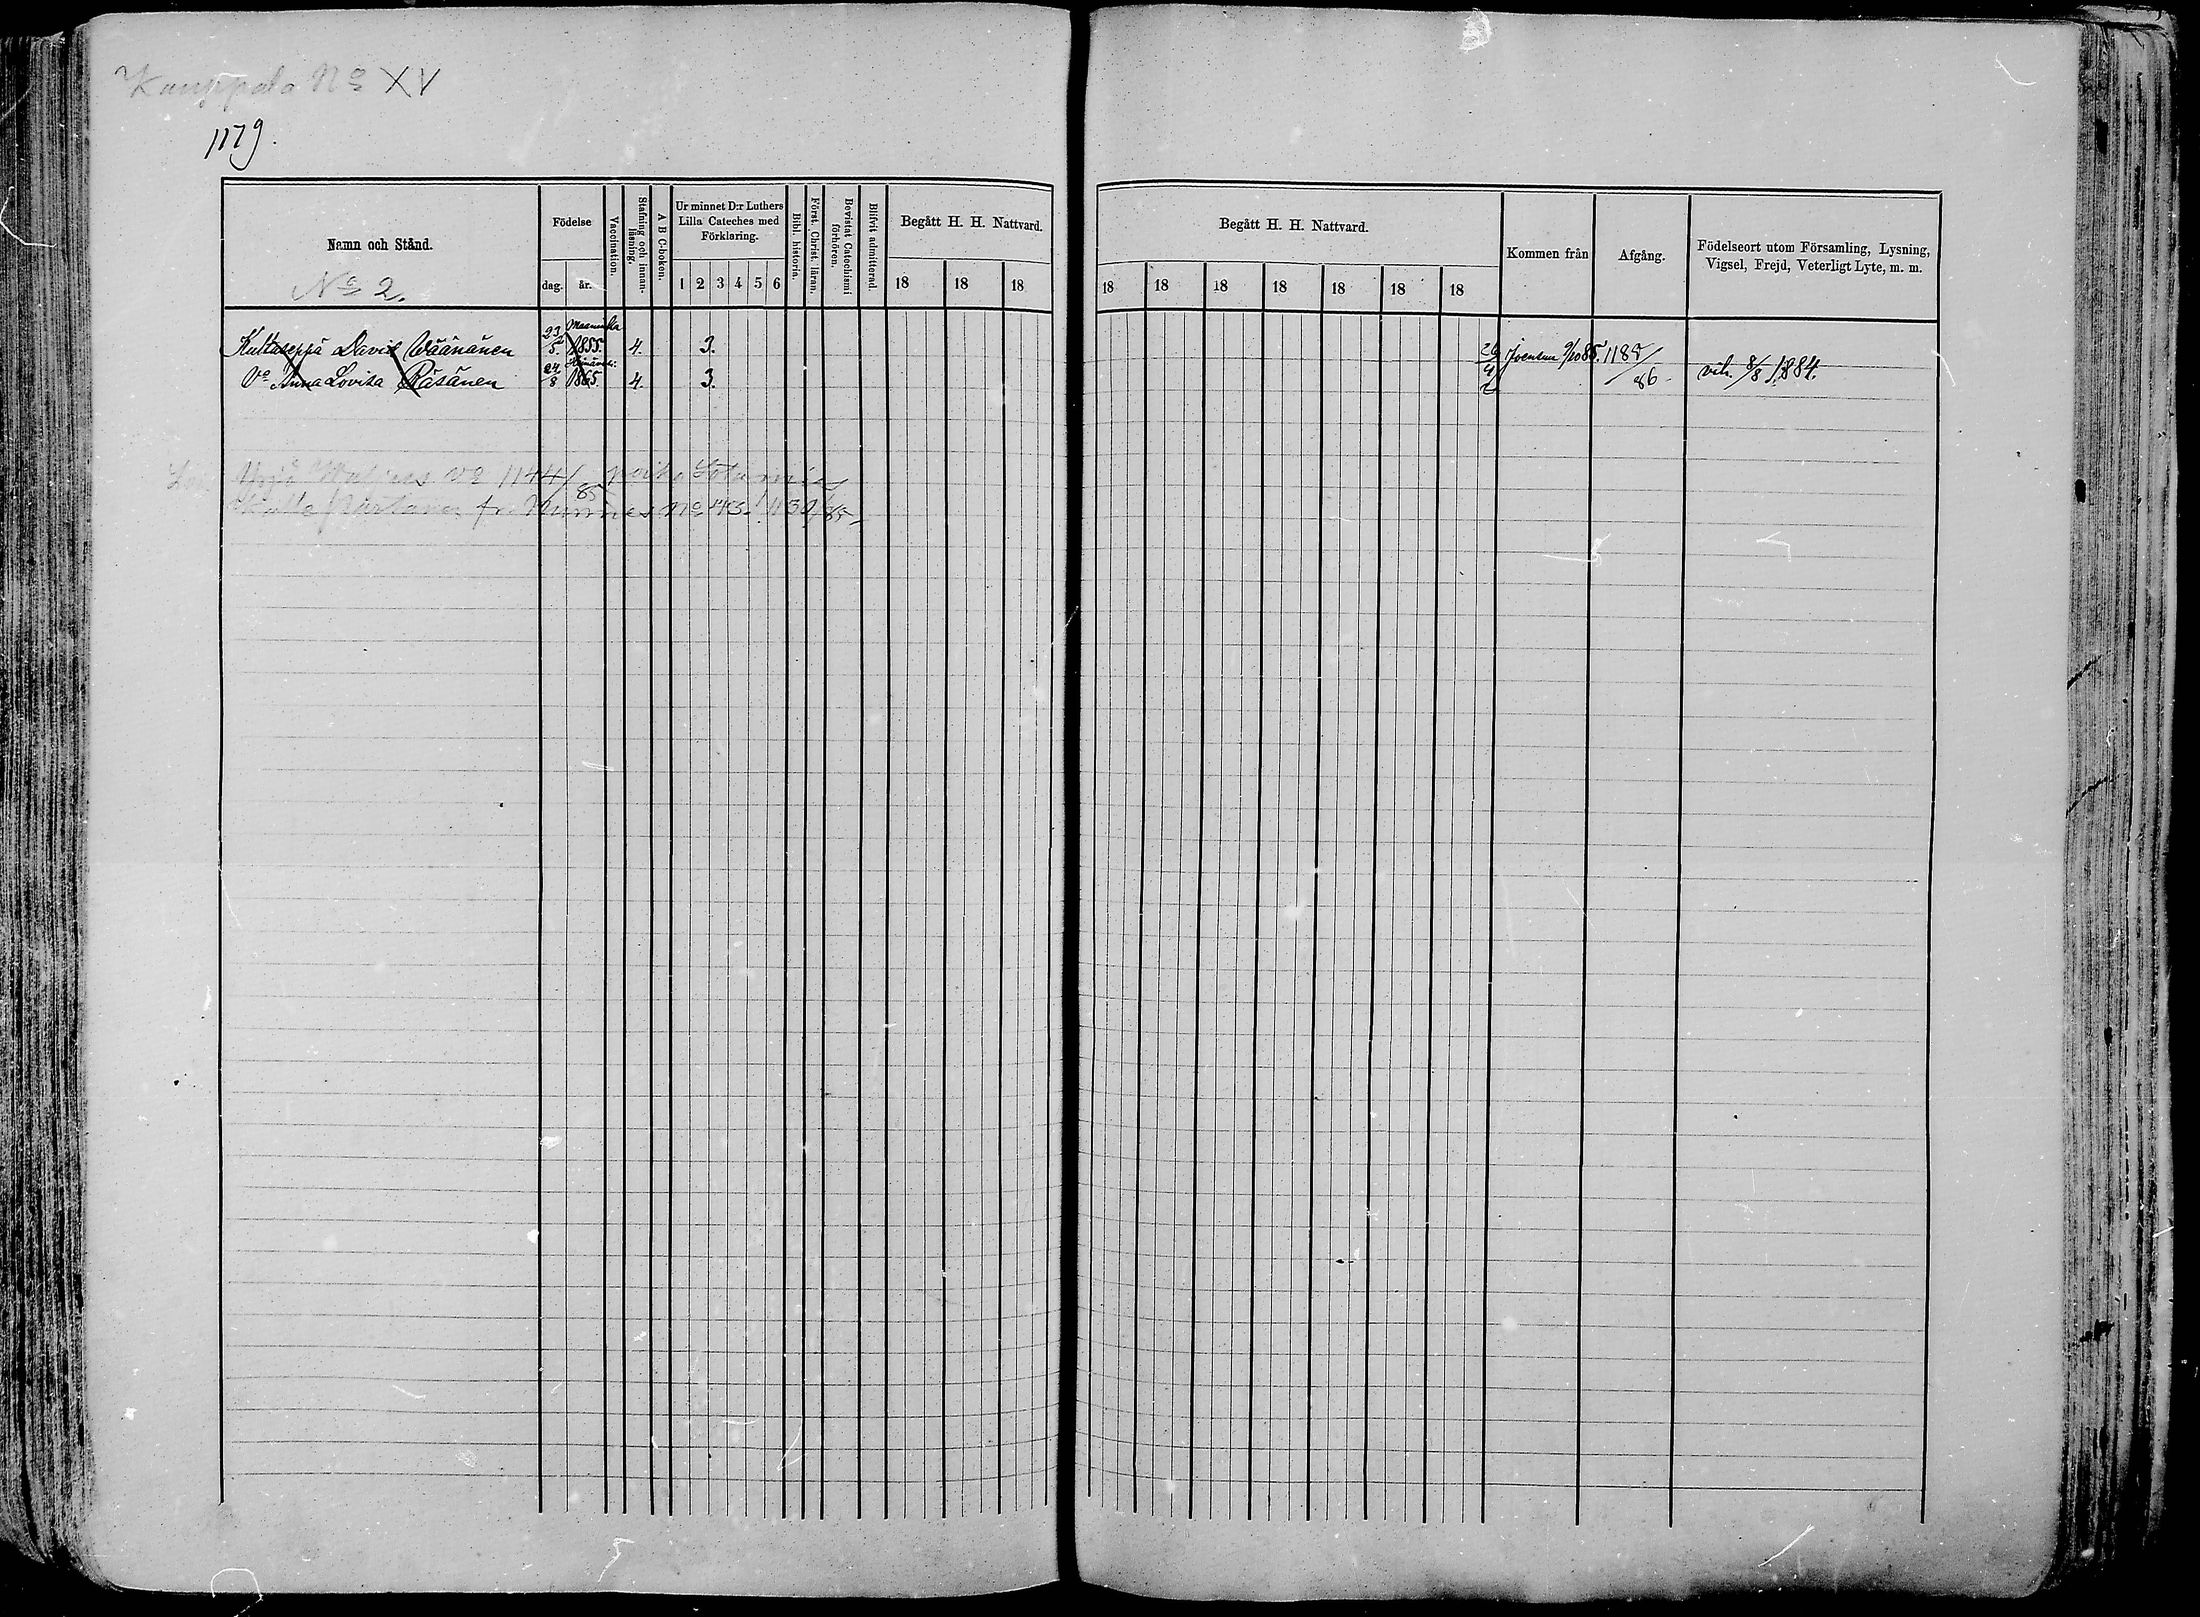 Kauppala No XV
1179.
Namn och Stånd.
Födelse
dag. år.
Vaccination.
Stafning och innanläsning.
A B C-boken.
Ur minnet D:r Luthers
Lilla Cateches med
Förklaring.
1 2 3 4 5 6
Bibl. historia.
Först. Christ. läran.
Bevistat Catechismi förhören.
Blifvit admitterad.
Begått H. H. Nattvard.
18 18 18
Begått H. H. Nattvard.
18 18 18 18 18 18 18
Kommen från
Afgång.
Födelseort utom Församling, Lysning,
Vigsel, Frejd, Veterligt Lyte, m. m.
No 2.
Kultaseppä David Väänänen 23/5. Maaninka 1855. 4. 3. Joensuu 9/10 85. 1185/86 vih. 8/8 1884.
Vo Anna Lovisa Räsänen 24/8 1865 4. 3.
1144/85 poika
Kalle fr. Nurmes No 43.